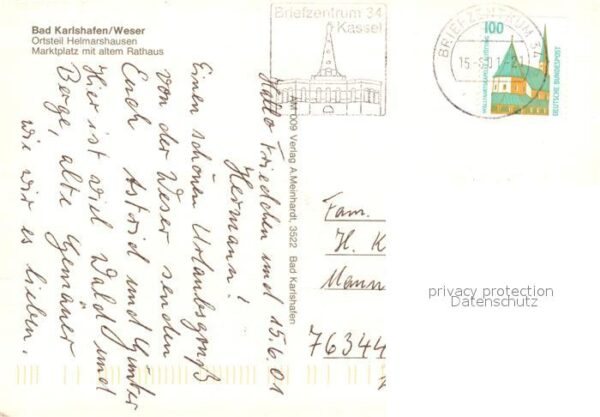 Bad Karlshafen/Weser
Ortsteil Helmarshausen
Marktplatz mit altem Rathaus
Briefzentrum 34
Kassel
BRIEFZENTRUM 34
15.-6.01-21
100
WALLFAHRTSKAPELLE ALTÖTTING
DEUTSCHE BUNDESPOST
009 Verlag A.Meinhardt, 3522 Bad Karlshafen
15.6.01
Hallo Friedchen und
Hermann!
Einen schönen Urlaubsgruß
von der Weser senden
Euch Astrid und Günter
Hier ist viel Wald und
Berge, alte Gemäuer
wie wir es lieben.
Fam.
H. K
Mann
76344
privacy protection
Datenschutz